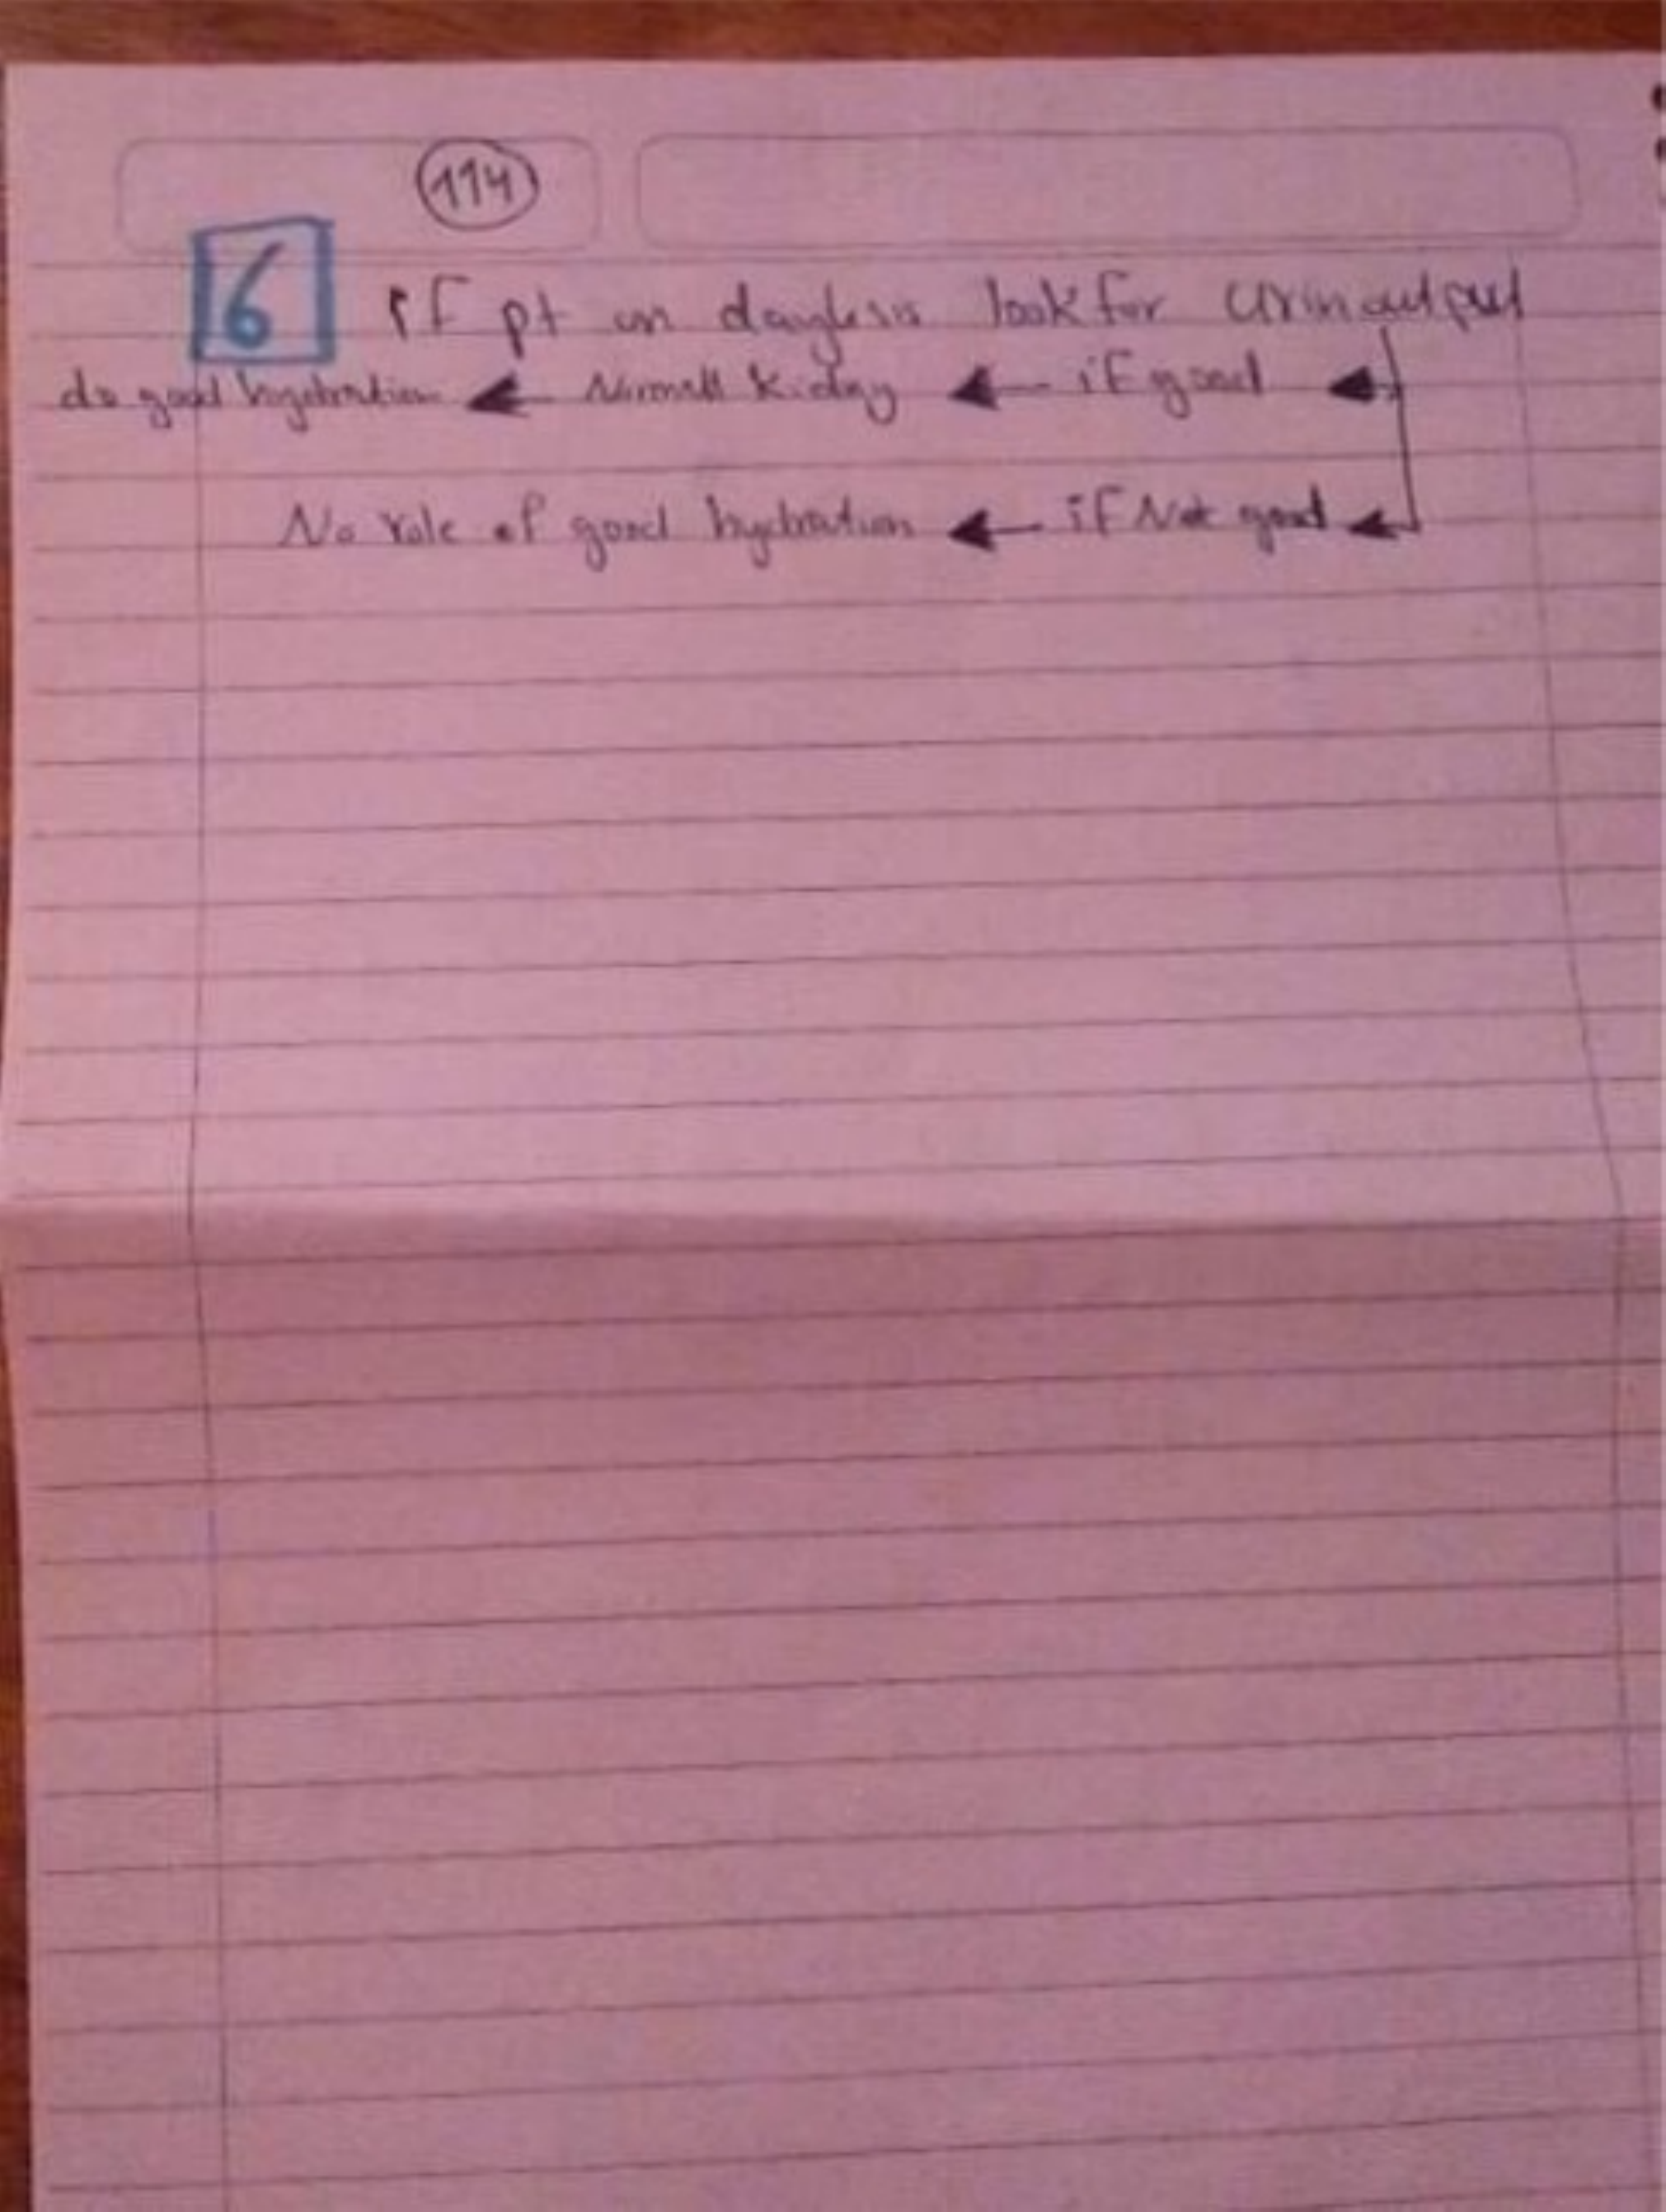 114
6 if pt on daylesis look for Urin output
do good hydration ← Normall kidny ← if good ←
No role of good hydration ← if Not good ←